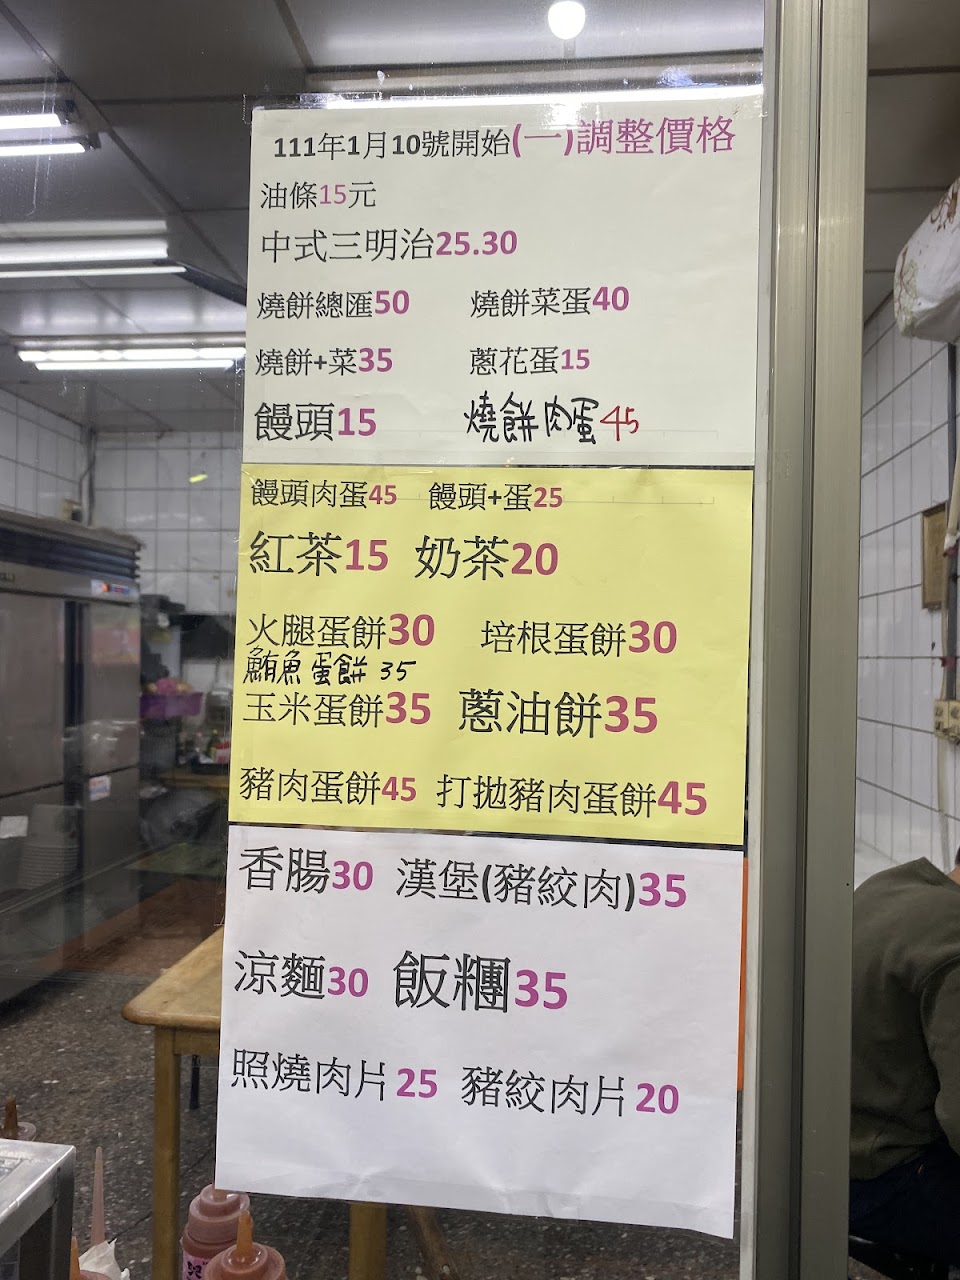 111年1月10號開始(一)調整價格
油條15元
中式三明治25.30
燒餅總匯50 燒餅菜蛋40
燒餅+菜35 蔥花蛋15
饅頭15 燒餅肉蛋45
饅頭肉蛋45 饅頭+蛋25
紅茶15 奶茶20
火腿蛋餅30 培根蛋餅30
鮪魚蛋餅 35
玉米蛋餅35 蔥油餅35
豬肉蛋餅45 打拋豬肉蛋餅45
香腸30 漢堡(豬絞肉)35
涼麵30 飯糰35
照燒肉片25 豬絞肉片20